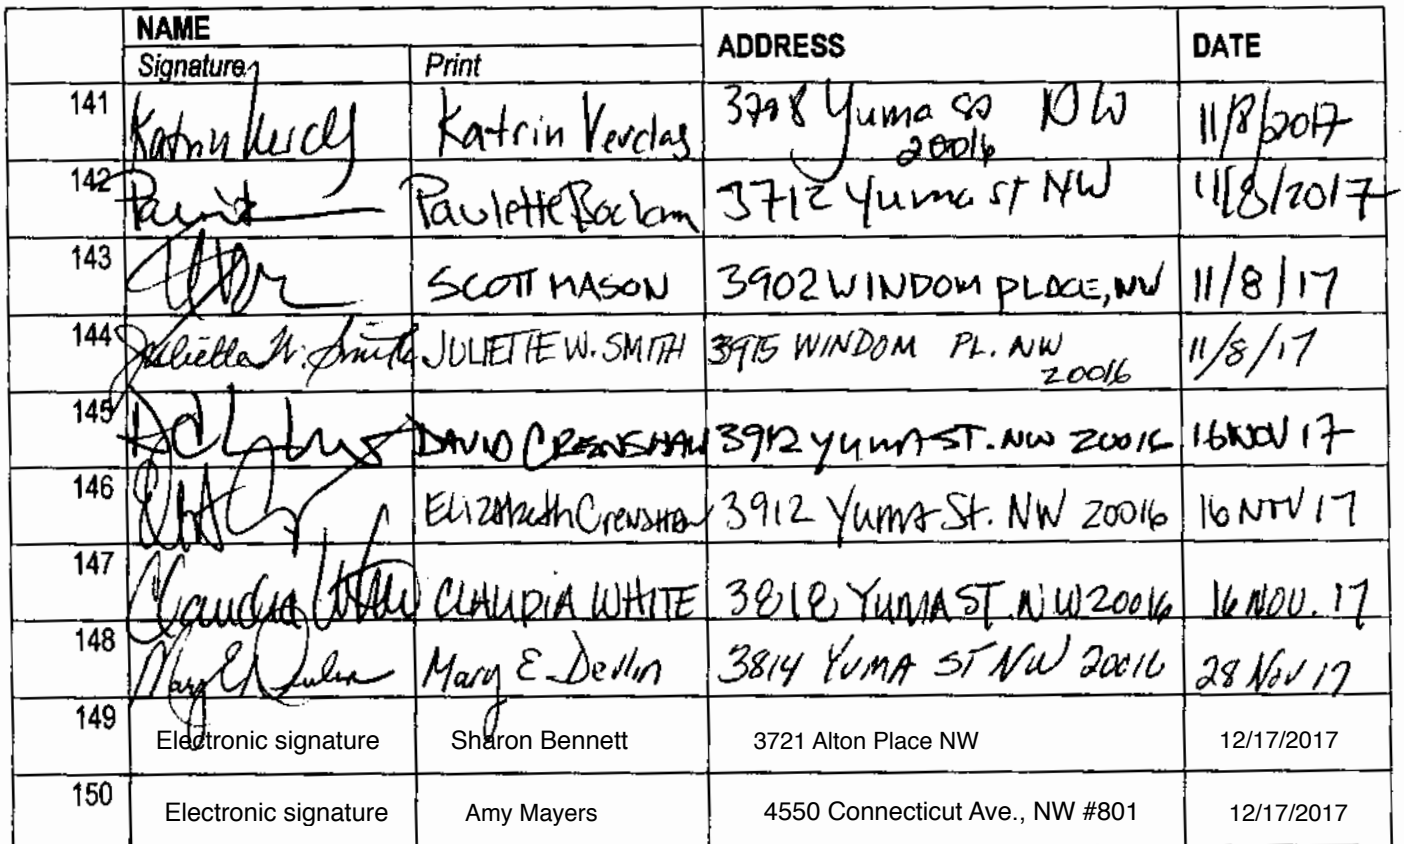 NAME ADDRESS DATE
Signature Print
141 Katrin Verclas Katrin Verclas 3798 Yuma St NW 11/8/2017
20016
142 Paulette 3712 Yuma St NW 11/8/2017
143 SCOTT MASON 3902 WINDOM PLACE, NW 11/8/17
144 Juliette W. Smith JULIETTE W. SMITH 3915 WINDOM PL. NW 11/8/17
20016
145 DAVID CRENSHAW 3912 YUMA ST. NW 20016 16 NOV 17
146 Elizabeth Crenshaw 3912 Yuma St. NW 20016 16 NOV 17
147 Claudia White CLAUDIA WHITE 3818 YUMA ST. NW 20016 16 NOV. 17
148 Mary E Devlin Mary E Devlin 3814 YUMA ST NW 20016 28 Nov 17
149 Electronic signature Sharon Bennett 3721 Alton Place NW 12/17/2017
150 Electronic signature Amy Mayers 4550 Connecticut Ave., NW #801 12/17/2017